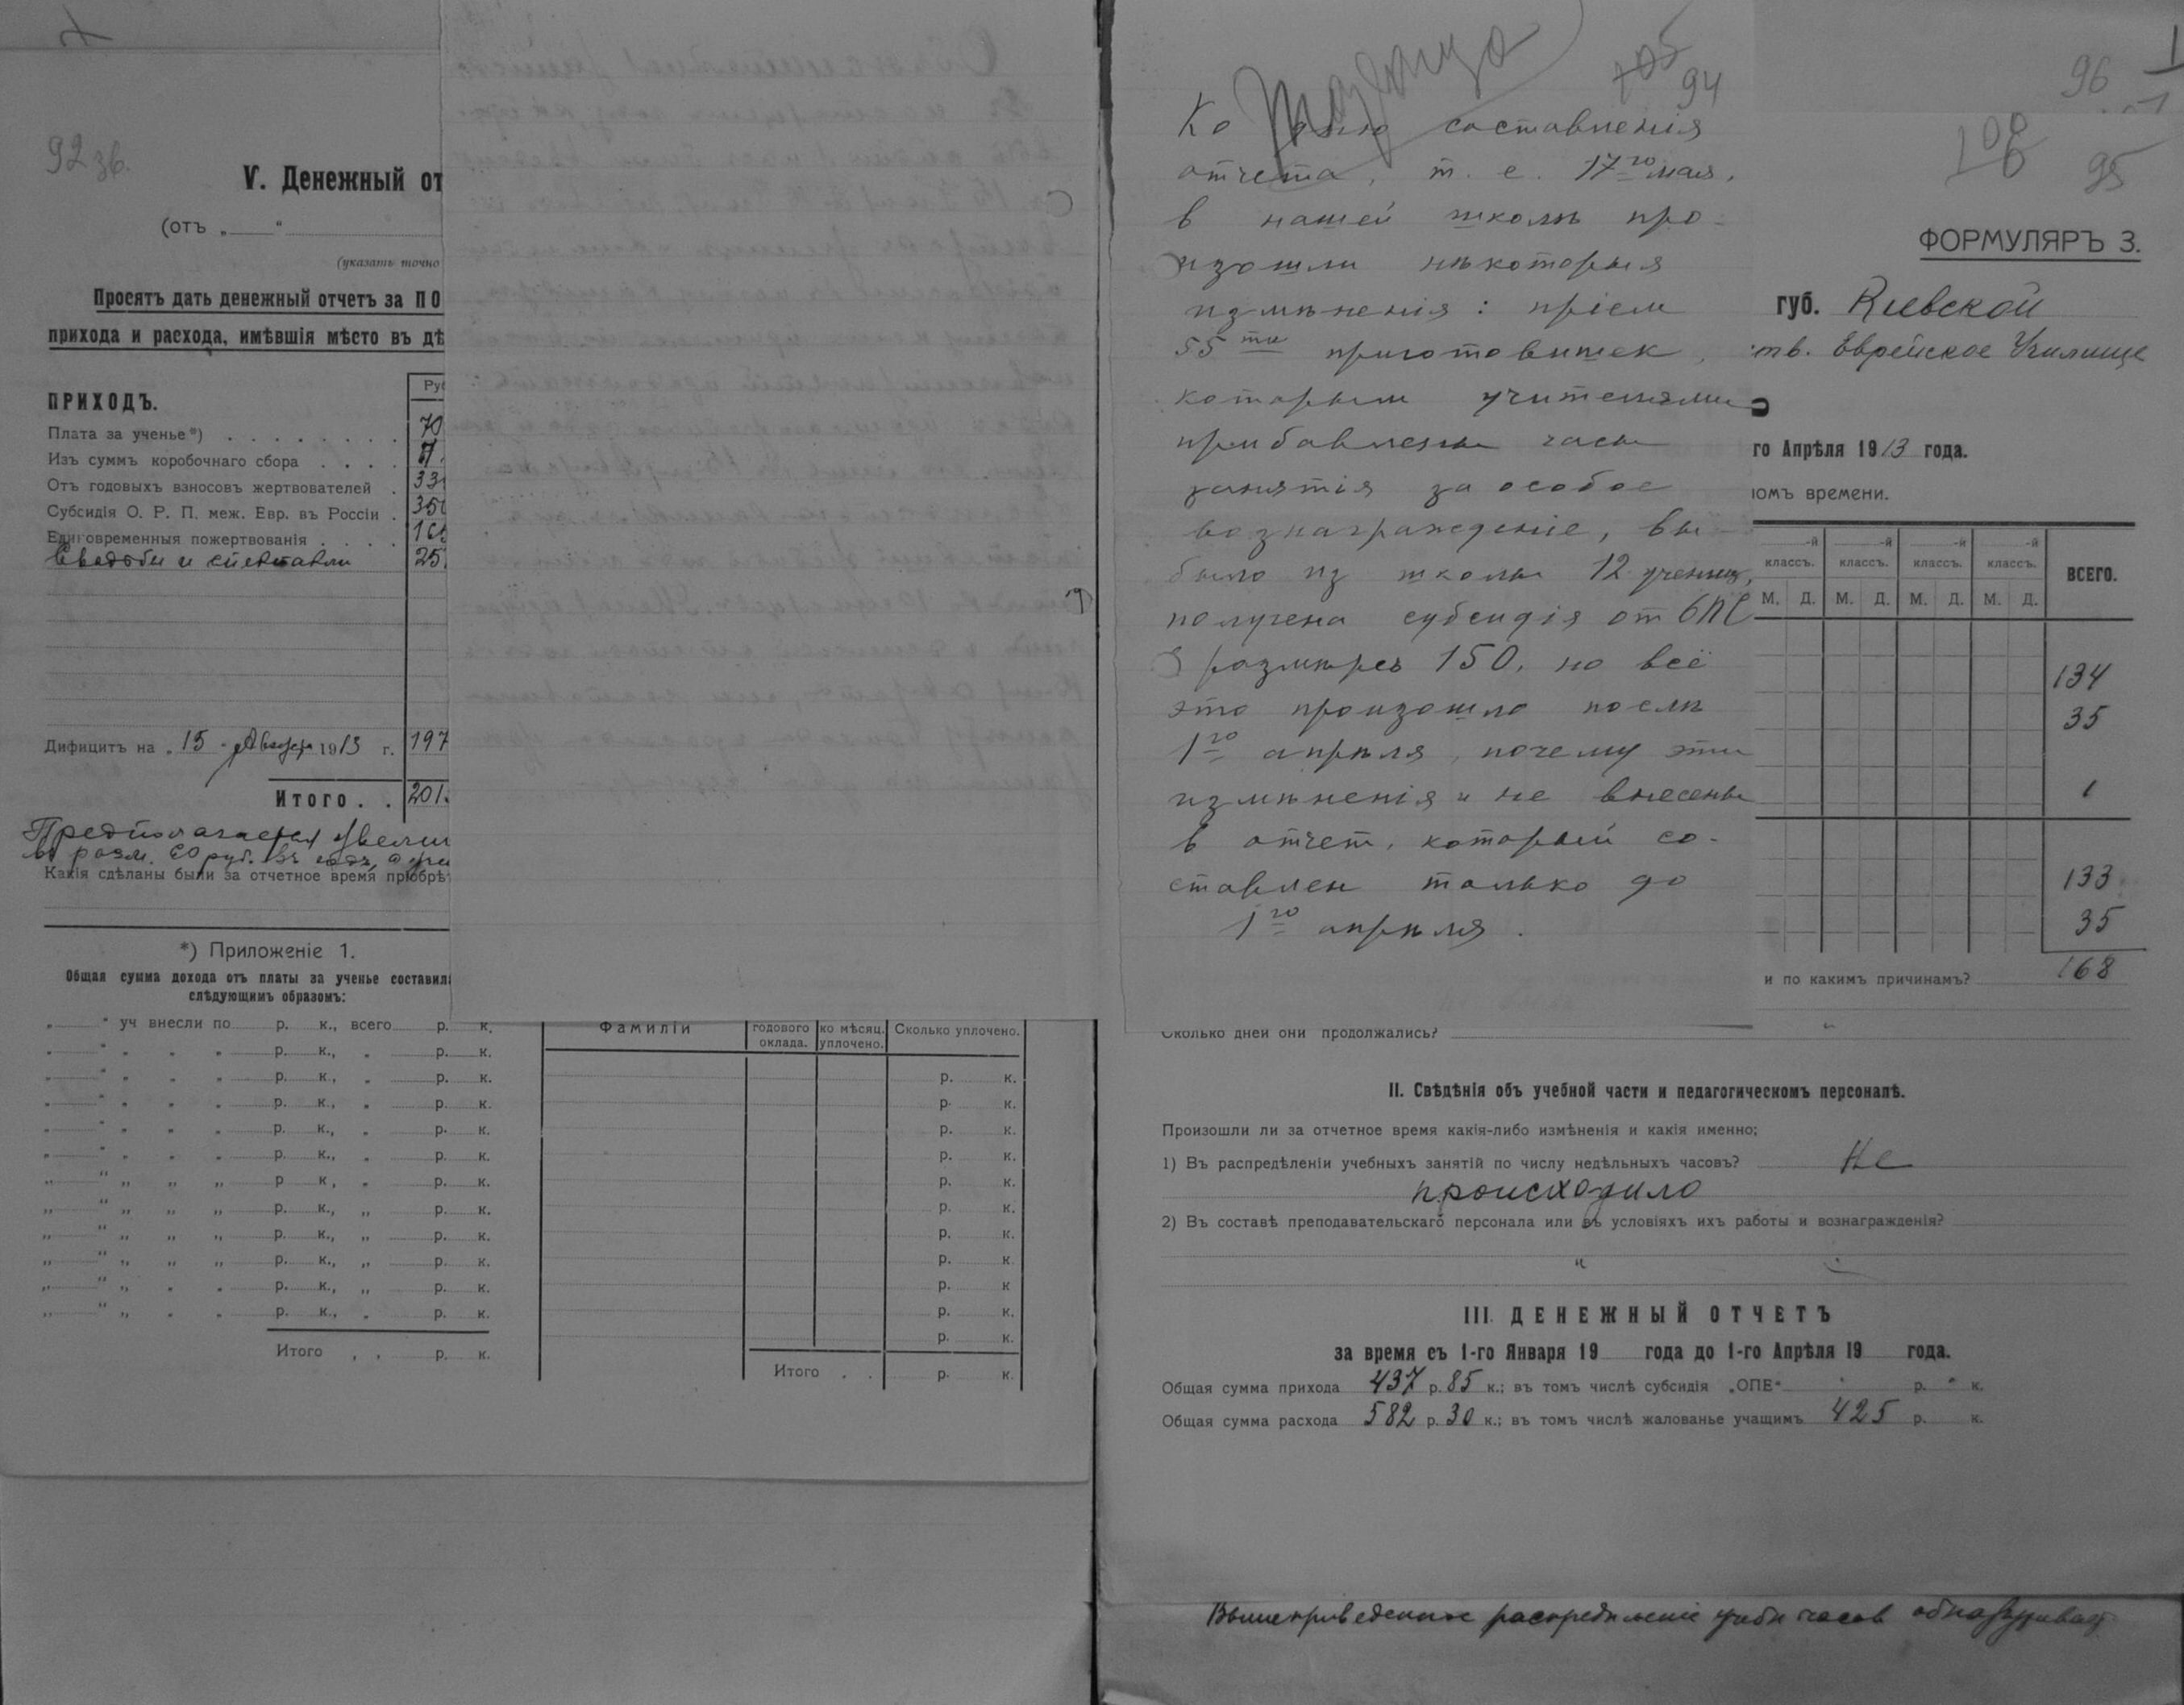 92 зв.
V. Денежный от
(отъ „ “
(указать точно
Просятъ дать денежный отчетъ за ПО
прихода и расхода, имѣвшія мѣсто въ дѣ
Руб
ПРИХОДЪ.
Плата за ученье*) 70
Изъ суммъ коробочнаго сбора
Отъ годовыхъ взносовъ жертвователей 33
Субсидія О. Р. П. меж. Евр. въ Россіи 350
Единовременныя пожертвованія
Свадьбы и спектакли 25
Дифицитъ на „15 “ 1913 г. 197
Итого . . 201
Предполагается увелич
въ разм. руб. въ годъ,
Какія сдѣланы были за отчетное время пріобрѣт
*) Приложеніе 1.
Общая сумма дохода отъ платы за ученье составил
слѣдующимъ образомъ:
„ “ уч внесли по р. к., всего р. к.
„ “ „ „ „ р. к., „ р. к.
„ “ „ „ „ р. к., „ р. к.
„ “ „ „ „ р. к., „ р. к.
„ “ „ „ „ р. к., „ р. к.
„ “ „ „ „ р. к., „ р. к.
„ “ „ „ „ р к , „ р. к.
„ “ „ „ „ р. к., „ р. к.
„ “ „ „ „ р. к., „ р. к.
„ “ „ „ „ р. к., „ р. к.
„ “ „ „ „ р. к., „ р. к.
„ “ „ „ „ р. к., „ р. к.
Итого , , р. к.
Фамиліи
годового оклада.
ко мѣсяц. уплочено.
Сколько уплочено.
р. к.
р. к.
р. к.
р. к.
р. к.
р. к.
р. к.
р. к.
р. к
р. к.
р. к.
Итого . . р. к.
105
94
Ко дню составленія
отчета, т. е. 17го мая,
в нашей школѣ про-
изошли нѣкоторыя
измѣненія: пріем
55ти приготовишек,
которым учителями
прибавлены часы
занятія за особое
вознагражденіе, вы-
было из школы 12 учениц,
получена субсидія от ОПЕ
в размѣрѣ 150, но всё
это произошло послѣ
1го апрѣля, почему эти
измѣненія и не внесены
в отчет, который со-
ставлен только до
1го апрѣля.
96
106
95
ФОРМУЛЯРЪ 3.
губ. Киевской
тв. Еврейское Училище
го Апрѣля 1913 года.
номъ времени.
-й классъ. -й классъ. -й классъ. -й классъ. ВСЕГО.
М. Д. М. Д. М. Д. М. Д.
134
35
1
133
35
168
и по какимъ причинамъ?
Сколько дней они продолжались?
II. Свѣдѣнія объ учебной части и педагогическомъ персоналѣ.
Произошли ли за отчетное время какія-либо измѣненія и какія именно;
1) Въ распредѣленіи учебныхъ занятій по числу недѣльныхъ часовъ? Не
происходило
2) Въ составѣ преподавательскаго персонала или въ условіяхъ ихъ работы и вознагражденія?
"
III. ДЕНЕЖНЫЙ ОТЧЕТЪ
за время съ 1-го Января 19 года до 1-го Апрѣля 19 года.
Общая сумма прихода 437 р. 85 к.; въ томъ числѣ субсидія „ОПЕ“ " р. " к.
Общая сумма расхода 582 р. 30 к.; въ томъ числѣ жалованье учащимъ 425 р. к.
Вышеприведенное распредѣленіе учебн часов обнаруживает